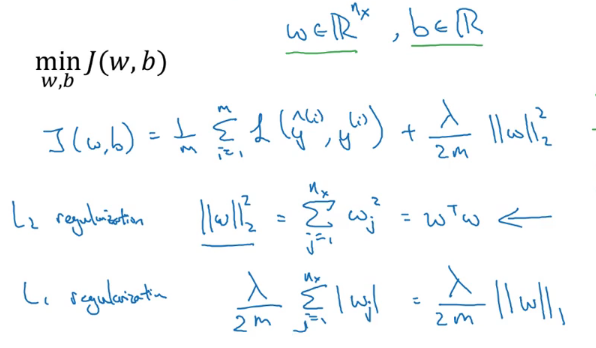 w ∈ ℝ^{n_x} , b ∈ ℝ
min_{w,b} J(w, b)
J(w,b) = 1/m ∑_{i=1}^{m} ℒ(ŷ^{(i)}, y^{(i)}) + λ/2m ||w||_2^2
L_2 regularization ||w||_2^2 = ∑_{j=1}^{n_x} w_j^2 = w^T w ←
L_1 regularization λ/2m ∑_{j=1}^{n_x} |w_j| = λ/2m ||w||_1